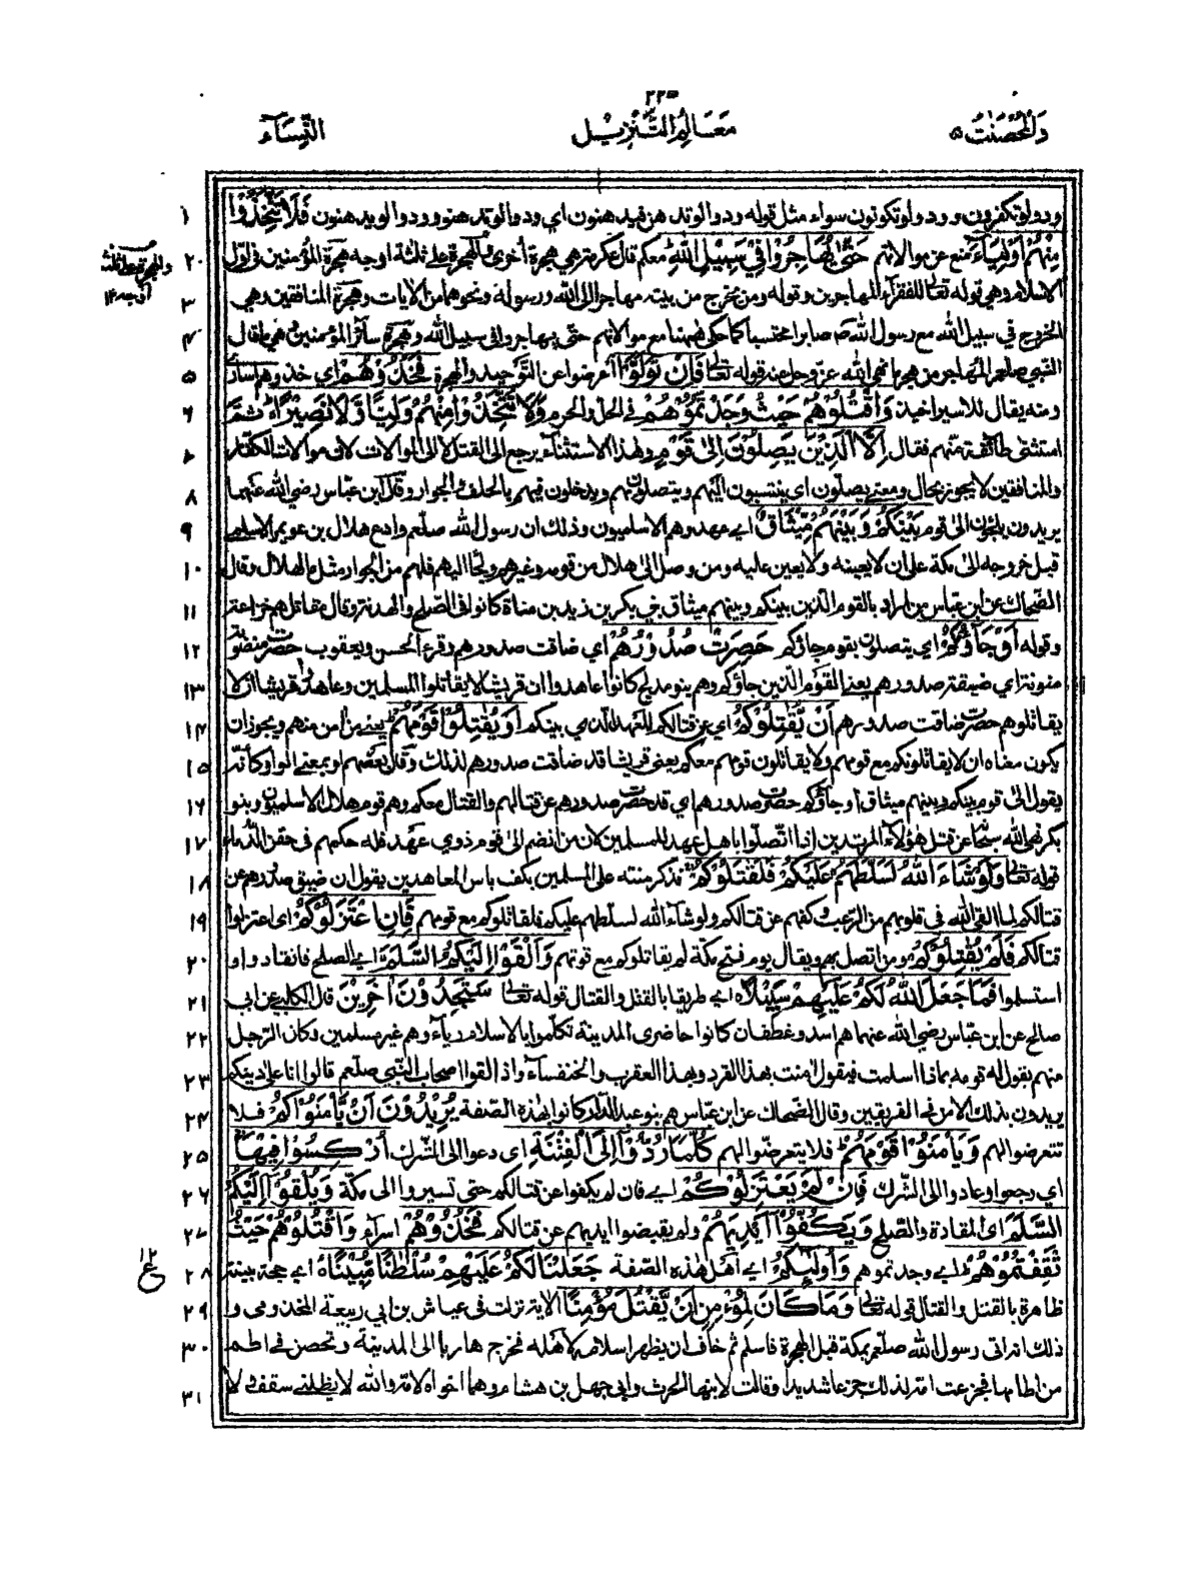 ٢٢٥
والمحصنت ٥ معالم التنزيل النساء
وردوا لو تكفرون وودوا لو تكونون سواء مثل قوله ودوا لو تدهن فيدهنون اي ودوا لو تدهن وودوا لو يدهنون فَلَا تَتَّخِذُوْا ١
مِنْهُمْ اَوْلِيَاءَ منع عن موالاتهم حَتّٰى يُهَاجِرُوْا فِيْ سَبِيْلِ اللّٰهِ معكم قال عكرمة هي هجرة أخرى والهجرة على ثلثة اوجه هجرة المؤمنين في اول ٢
والهجرة على ثلثة اوجه ١٢
الاسلام وهي قوله تعالى للفقراء المهاجرين وقوله ومن يخرج من بيته مهاجرا الى الله ورسوله ونحوهما من الايات وهجرة المنافقين وهي ٣
الخروج في سبيل الله مع رسول الله صابرا محتسبا كما حكى ههنا مع موالاتهم حتى يهاجروا في سبيل الله وهجرة سائر المؤمنين هي ما قال ٤
النبي صلعم المهاجر من هجر ما نهى الله عز وجل عنه قوله تعالى فَاِنْ تَوَلَّوْا اعرضوا عن التوحيد والهجرة فَخُذُوْهُمْ اي خذوهم اسارى ٥
ومنه يقال للاسير اخيذ وَاقْتُلُوْهُمْ حَيْثُ وَجَدْتُّمُوْهُمْ في الحل والحرم وَلَا تَتَّخِذُوْا مِنْهُمْ وَلِيًّا وَّلَا نَصِيْرًا ثم ٦
استثنى طائفة منهم فقال اِلَّا الَّذِيْنَ يَصِلُوْنَ اِلٰى قَوْمٍ وهذا الاستثناء يرجع الى القتل لا الى الموالات لان موالات الكفار ٧
والمنافقين لا يجوز بحال ومعنى يصلون اي ينتسبون اليهم ويتصلون بهم ويدخلون فيهم بالحلف والجوار وقال ابن عباس رضي الله عنهما ٨
يريدون يلجؤن الى قوم بَيْنَكُمْ وَبَيْنَهُمْ مِّيْثَاقٌ اي عهد وهم الاسلميون وذلك ان رسول الله صلعم وادع هلال بن عويمر الاسلمي ٩
قبل خروجه الى مكة على ان لا يعينه ولا يعين عليه ومن وصل الى هلال من قومه وغيرهم ولجأ اليهم فلهم من الجوار مثل ما لهلال وقال ١٠
الضحاك عن ابن عباس من المراد بالقوم الذين بينكم وبينهم ميثاق بني بكر بن زيد بن مناة كانوا في الصلح والهدنة وقال مقاتل هم خزاعة ١١
وقوله اَوْ جَآءُوْكُمْ اي يتصلون بقوم جاؤكم حَصِرَتْ صُدُوْرُهُمْ اي ضاقت صدورهم وقرأ الحسن ويعقوب حصرت منصوبة ١٢
منونة اي ضيقة صدورهم يعني القوم الذين جاؤكم وهم بنو مدلج كانوا عاهدوا ان قريشا لا يقاتلوا المسلمين وعاهدوا قريشا ان لا ١٣
يقاتلوهم حصرت ضاقت صدورهم اَنْ يُّقَاتِلُوْكُمْ اي عن قتالكم للعهد الذي بينكم اَوْ يُقَاتِلُوْا قَوْمَهُمْ يعني من أمن منهم ويجوز ان ١٤
يكون معناه ان لا يقاتلونكم مع قومهم ولا يقاتلون قومهم معكم يعني قريشا قد ضاقت صدورهم لذلك وقال بعضهم او بمعنى الواو كأنه ١٥
يقول الى قوم بينكم وبينهم ميثاق او جاؤكم حصرت صدورهم اي قد حصرت صدورهم عن قتالهم والقتال معكم وهم قوم هلال الاسلميون وبنو ١٦
بكر نهى الله سبحانه عن قتل هؤلاء المرتدين اذا اتصلوا باهل عهد للمسلمين لان من انضم الى قوم ذوي عهد فله حكمهم في حقن الدماء ١٧
قوله تعالى وَلَوْ شَاءَ اللّٰهُ لَسَلَّطَهُمْ عَلَيْكُمْ فَلَقٰتَلُوْكُمْ تذكر منته على المسلمين بكف باس المعاهدين يقول ان ضيق صدورهم عن ١٨
قتالكم لما القى الله في قلوبهم من الرعب وكفهم عن قتالكم ولو شاء الله لسلطهم عليكم فلقاتلوكم مع قومهم فَاِنِ اعْتَزَلُوْكُمْ اي اعتزلوا ١٩
قتالكم فَلَمْ يُقَاتِلُوْكُمْ ومن اتصل بهم ويقال يوم فتح مكة لم يقاتلوكم مع قومهم وَاَلْقَوْا اِلَيْكُمُ السَّلَمَ اي الصلح فانقادوا و ٢٠
استسلموا فَمَا جَعَلَ اللّٰهُ لَكُمْ عَلَيْهِمْ سَبِيْلًا اي طريقا بالقتل والقتال قوله تعالى سَتَجِدُوْنَ اٰخَرِيْنَ قال الكلبي عن ابي ٢١
صالح عن ابن عباس رضي الله عنهما هم اسد وغطفان كانوا حاضرى المدينة تكلموا بالاسلام رياء وهم غير مسلمين وكان الرجل ٢٢
منهم يقول له قومه بماذا اسلمت فيقول امنت بهذا القرد وبهذا العقرب والخنفساء واذا لقوا اصحاب النبي صلعم قالوا انا على دينكم ٢٣
يريدون بذلك الامن في الفريقين وقال الضحاك عن ابن عباس هم بنو عبد الدار كانوا بهذه الصفة يُرِيْدُوْنَ اَنْ يَّاْمَنُوْكُمْ فلا ٢٤
تتعرضوا لهم وَيَاْمَنُوْا قَوْمَهُمْ فلا يتعرضوا لهم كُلَّمَا رُدُّوْا اِلَى الْفِتْنَةِ اي دعوا الى الشرك اُرْكِسُوْا فِيْهَا ٢٥
اي رجعوا وعادوا الى الشرك فَاِنْ لَّمْ يَعْتَزِلُوْكُمْ اي فان لم يكفوا عن قتالكم حتى تسيروا الى مكة وَيُلْقُوْا اِلَيْكُمُ ٢٦
السَّلَمَ اي المقادة والصلح وَيَكُفُّوْا اَيْدِيَهُمْ ولم يقبضوا ايديهم عن قتالكم فَخُذُوْهُمْ اسراء وَاقْتُلُوْهُمْ حَيْثُ ٢٧
ثَقِفْتُمُوْهُمْ اي وجدتموهم وَاُولٰٓئِكُمْ اي اهل هذه الصفة جَعَلْنَا لَكُمْ عَلَيْهِمْ سُلْطٰنًا مُّبِيْنًا اي حجة بينة ٢٨
١٢ ع
ظاهرة بالقتل والقتال قوله تعالى وَمَا كَانَ لِمُؤْمِنٍ اَنْ يَّقْتُلَ مُؤْمِنًا الاية نزلت في عياش بن ابي ربيعة المخزومي و ٢٩
ذلك انه اتى رسول الله صلعم بمكة قبل الهجرة فاسلم ثم خاف ان يظهر اسلامه لاهله فخرج هاربا الى المدينة وتحصن في اطم ٣٠
من اطامها فجزعت امه لذلك جزعا شديدا وقالت لابنيها الحرث وابي جهل بن هشام وهما اخواه لامه والله لا يظلني سقف ولا ٣١